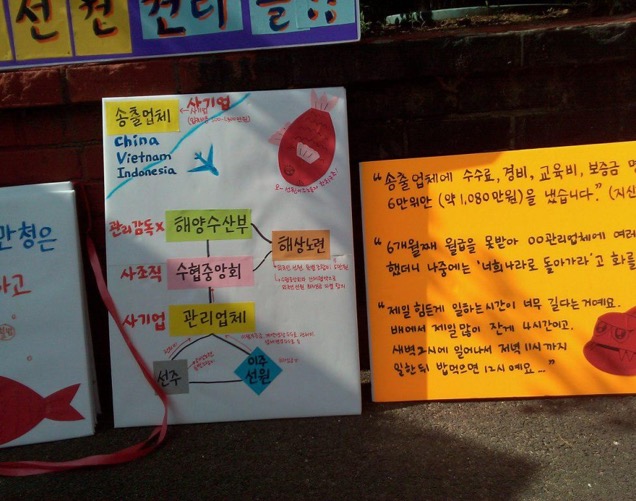 선원
만청은
하고
송출업체
사기업
China
Vietnam
Indonesia
관리감독X
해양수산부
해상노련
사조직
수협중앙회
사기업
관리업체
선주
이주
선원
"송출업체에 수수료, 경비, 교육비, 보증금
6만위안 (약 1,080만원)을 냈습니다." (지신
"6개월째 월급을 못받아 OO관리업체에 여러
했더니 나중에는 '너희나라로 돌아가라'고 화를
"제일 힘든게 일하는시간이 너무 길다는거예요.
배에서 제일 많이 잔게 4시간이고,
새벽2시에 일어나서 저녁 11시까지
일한뒤 밥먹으면 12시예요..."